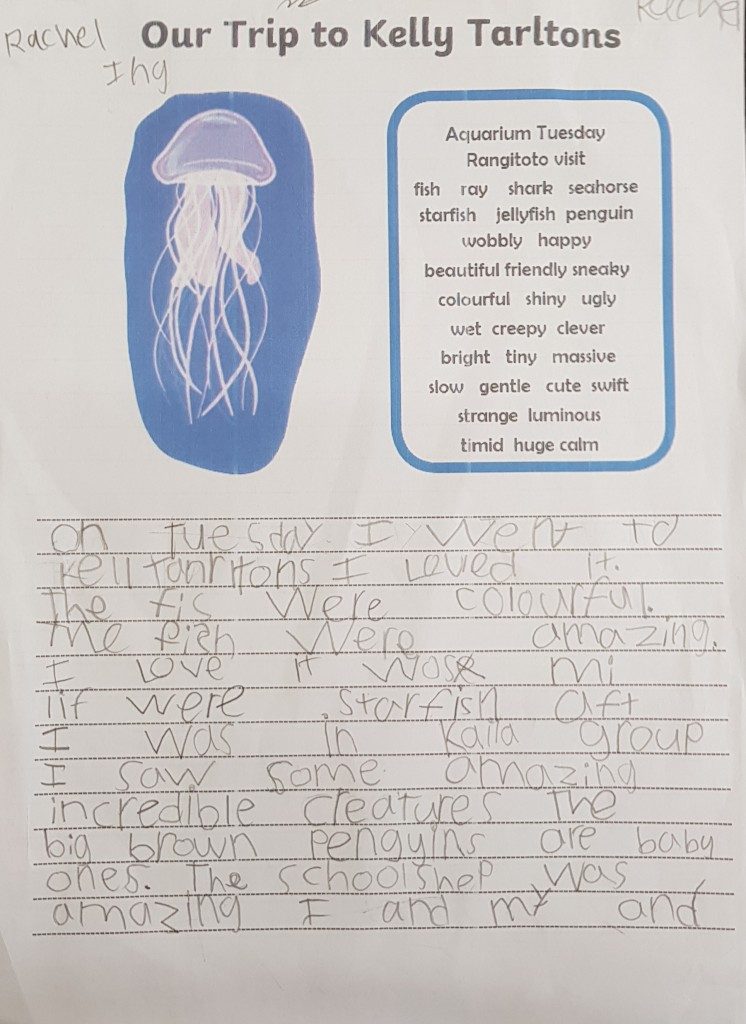 Rachel
Rachel
Our Trip to Kelly Tarltons
Ihg
Aquarium Tuesday
Rangitoto visit
fish ray shark seahorse
starfish jellyfish penguin
wobbly happy
beautiful friendly sneaky
colourful shiny ugly
wet creepy clever
bright tiny massive
slow gentle cute swift
strange luminous
timid huge calm
on Tuesday I went to
I Loved it.
The fis were colourful.
The fish were amazing.
I Love it mi
lif were starfish aft
I was in Kaila group
I saw some amazing
incredible creatures the
big brown penguins are baby
ones. The was
amazing I and my and